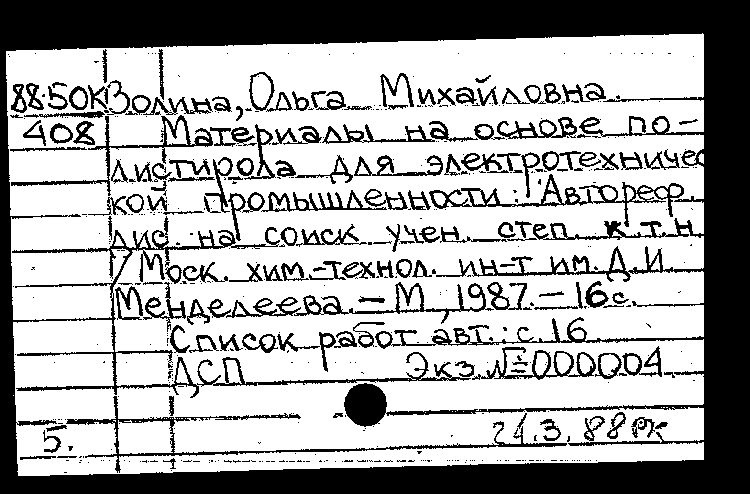 88.50К Золина, Ольга Михайловна.
408 Материалы на основе по-
листирола для электротехничес
кой промышленности: Автореф.
дис. на соиск учен. степ. к.т.н.
/ Моск. хим.-технол. ин-т им. Д.И.
Менделеева. – М, 1987. – 16с.
Список работ авт.: с. 16
ДСП Экз. № 000004
5. 21.3.88 РК